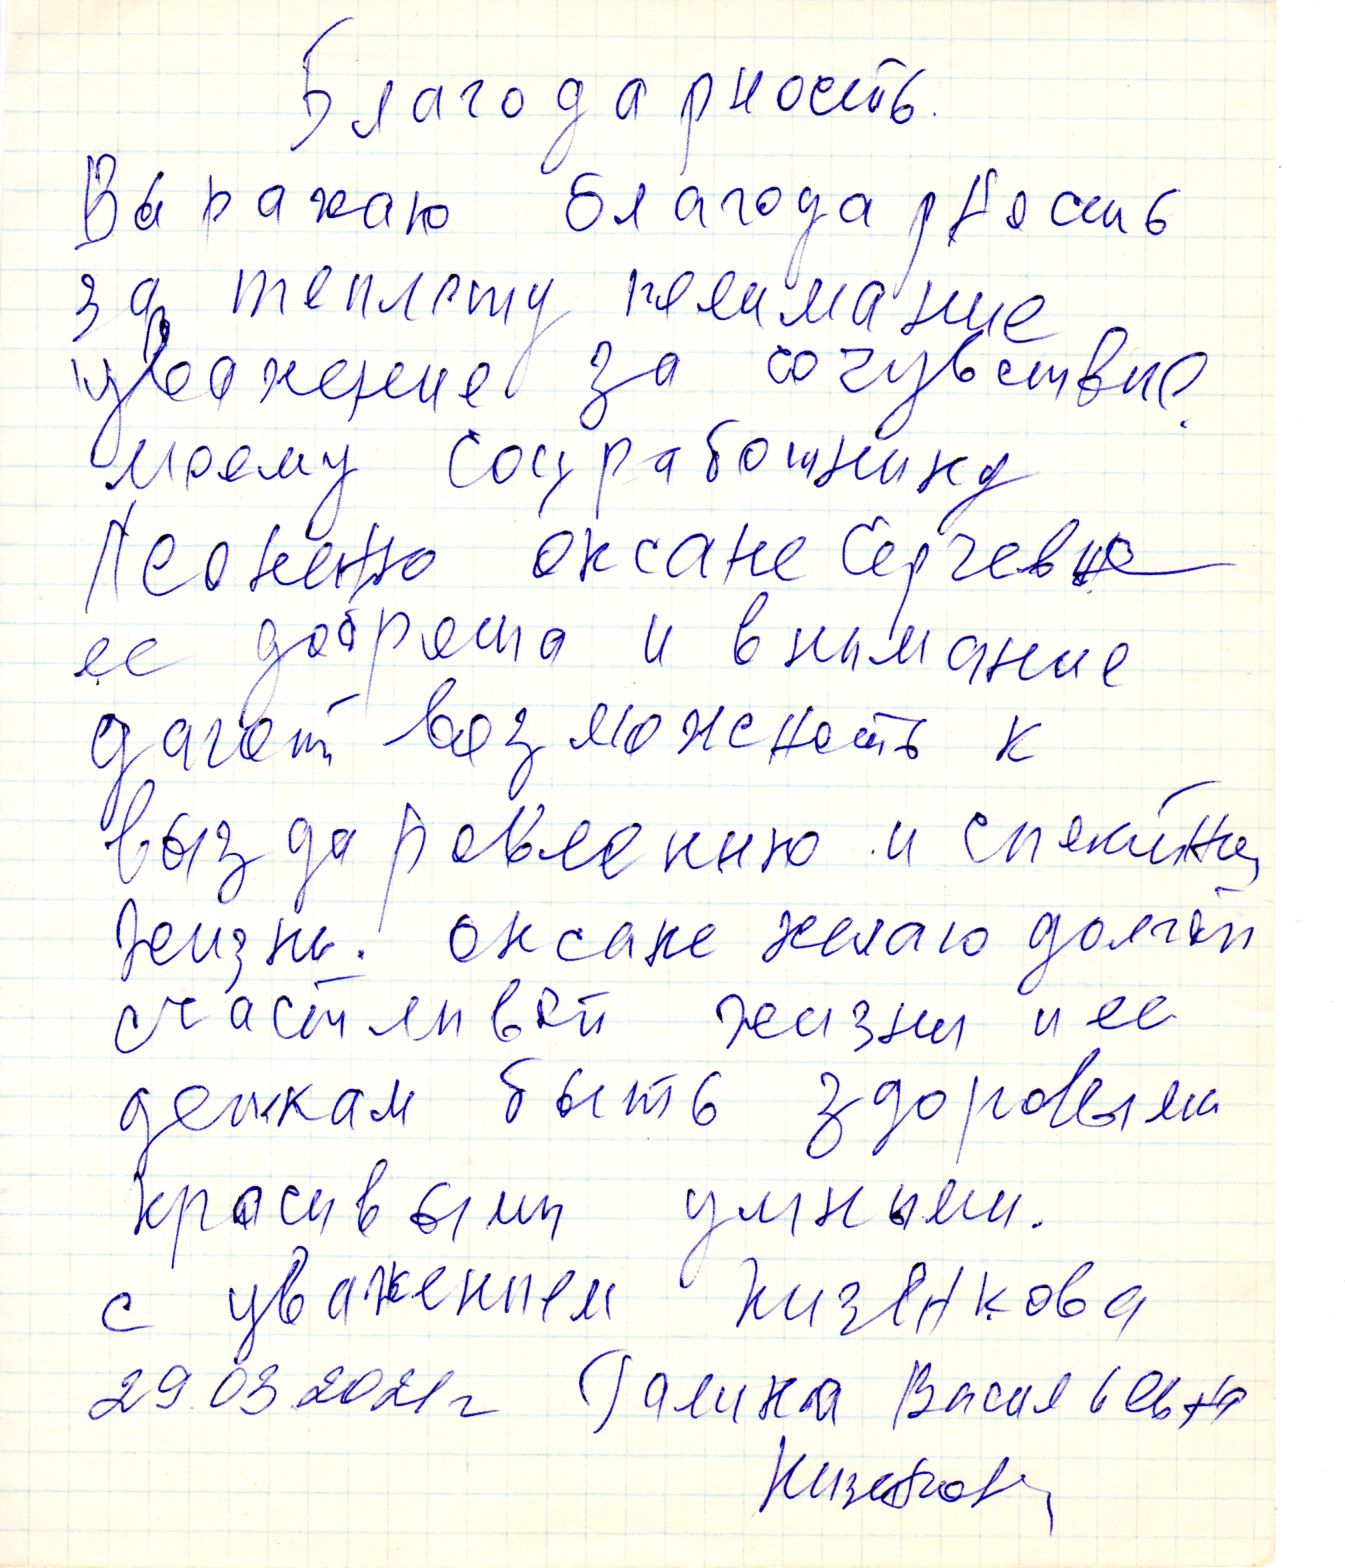 Благодарность.
Выражаю благодарность
за теплоту понимание
уважение за сочувствие
моему соцработнику
оксане Сергевне
ее доброта и внимание
дагот возможность к
выздаровлению и спокойну
жизнь. оксане желаю долгой
счастливой жизни и ее
деткам быть здоровыми
красивыми умными.
с уважением Кизенкова
29.03.2021г Галина Васильевна